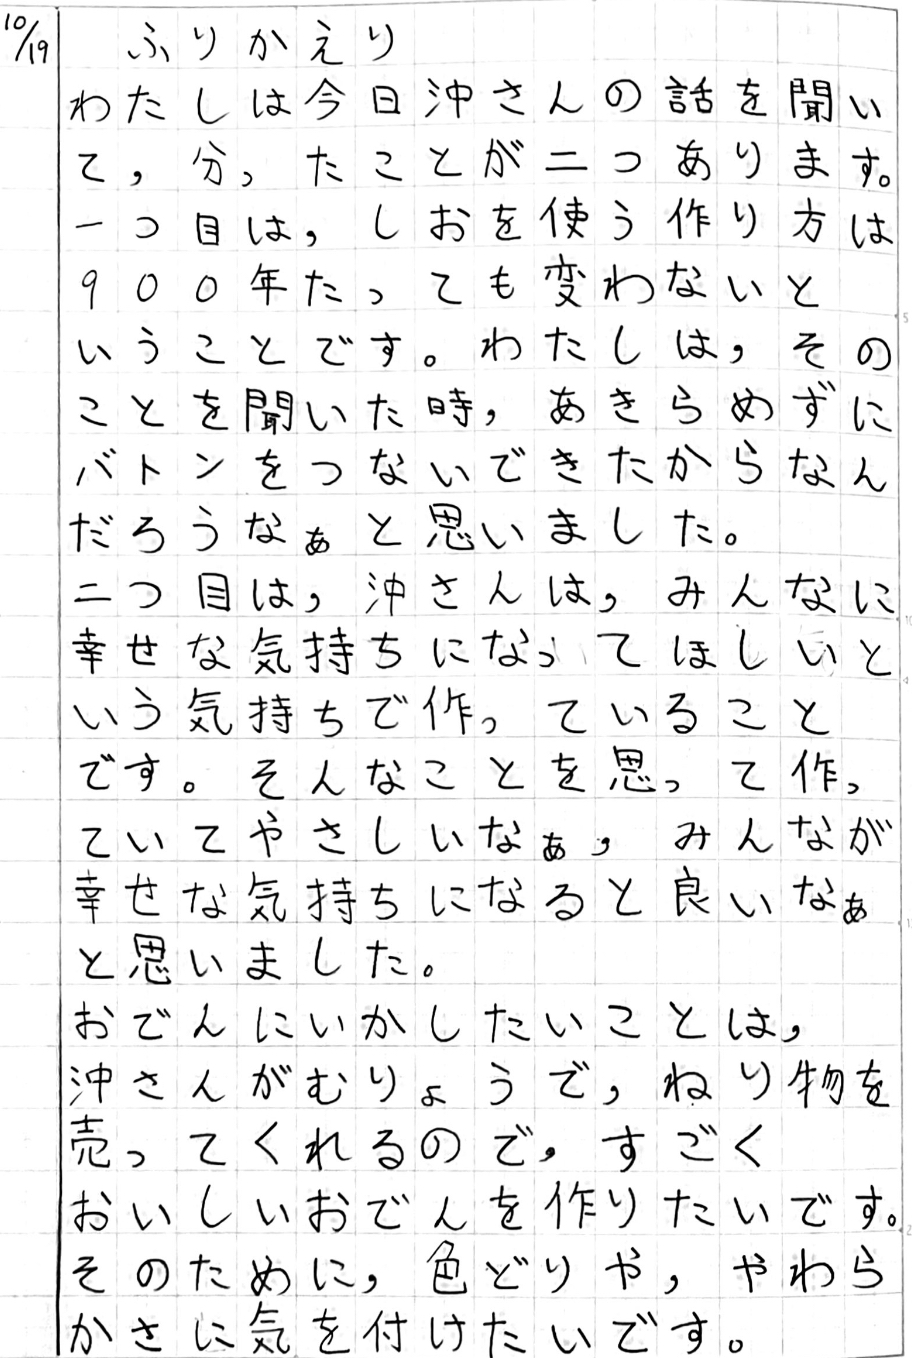 10/19
ふりかえり
わたしは今日沖さんの話を聞い
て，分，たことが二つあります。
一つ目は，しおを使う作り方は
900年たっても変わないと
いうことです。わたしは，その
ことを聞いた時，あきらめずに
バトンをつないできたからなん
だろうなぁと思いました。
二つ目は，沖さんは，みんなに
幸せな気持ちになってほしいと
いう気持ちで作っていること
です。そんなことを思って作っ
ていてやさしいなぁ，みんなが
幸せな気持ちになると良いなぁ
と思いました。
おでんにいかしたいことは，
沖さんがむりょうで，ねり物を
売ってくれるので，すごく
おいしいおでんを作りたいです。
そのために，色どりや，やわら
かさに気を付けたいです。